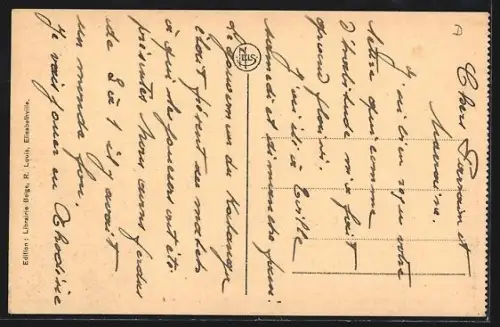 Chers Parrain et
Marraine.
J'ai bien reçu votre
lettre qui comme
d'habitude m'a fait
grand plaisir.
J'ai été à Eville
samedi et dimanche passé
le gouverneur du Katanga
était présent au match
à qui les joueurs ont été
présentés Nous avons perdu
de 2 à 1 il y avait
un monde fou.
Je vais jouer en Rhodésie
Edition : Librairie Belge, R. Louis, Elisabethville.